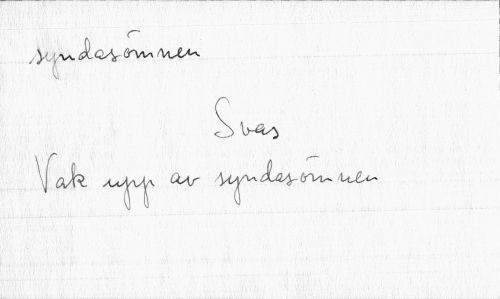 syndasömnen
Svas
Vak upp av syndasömnen